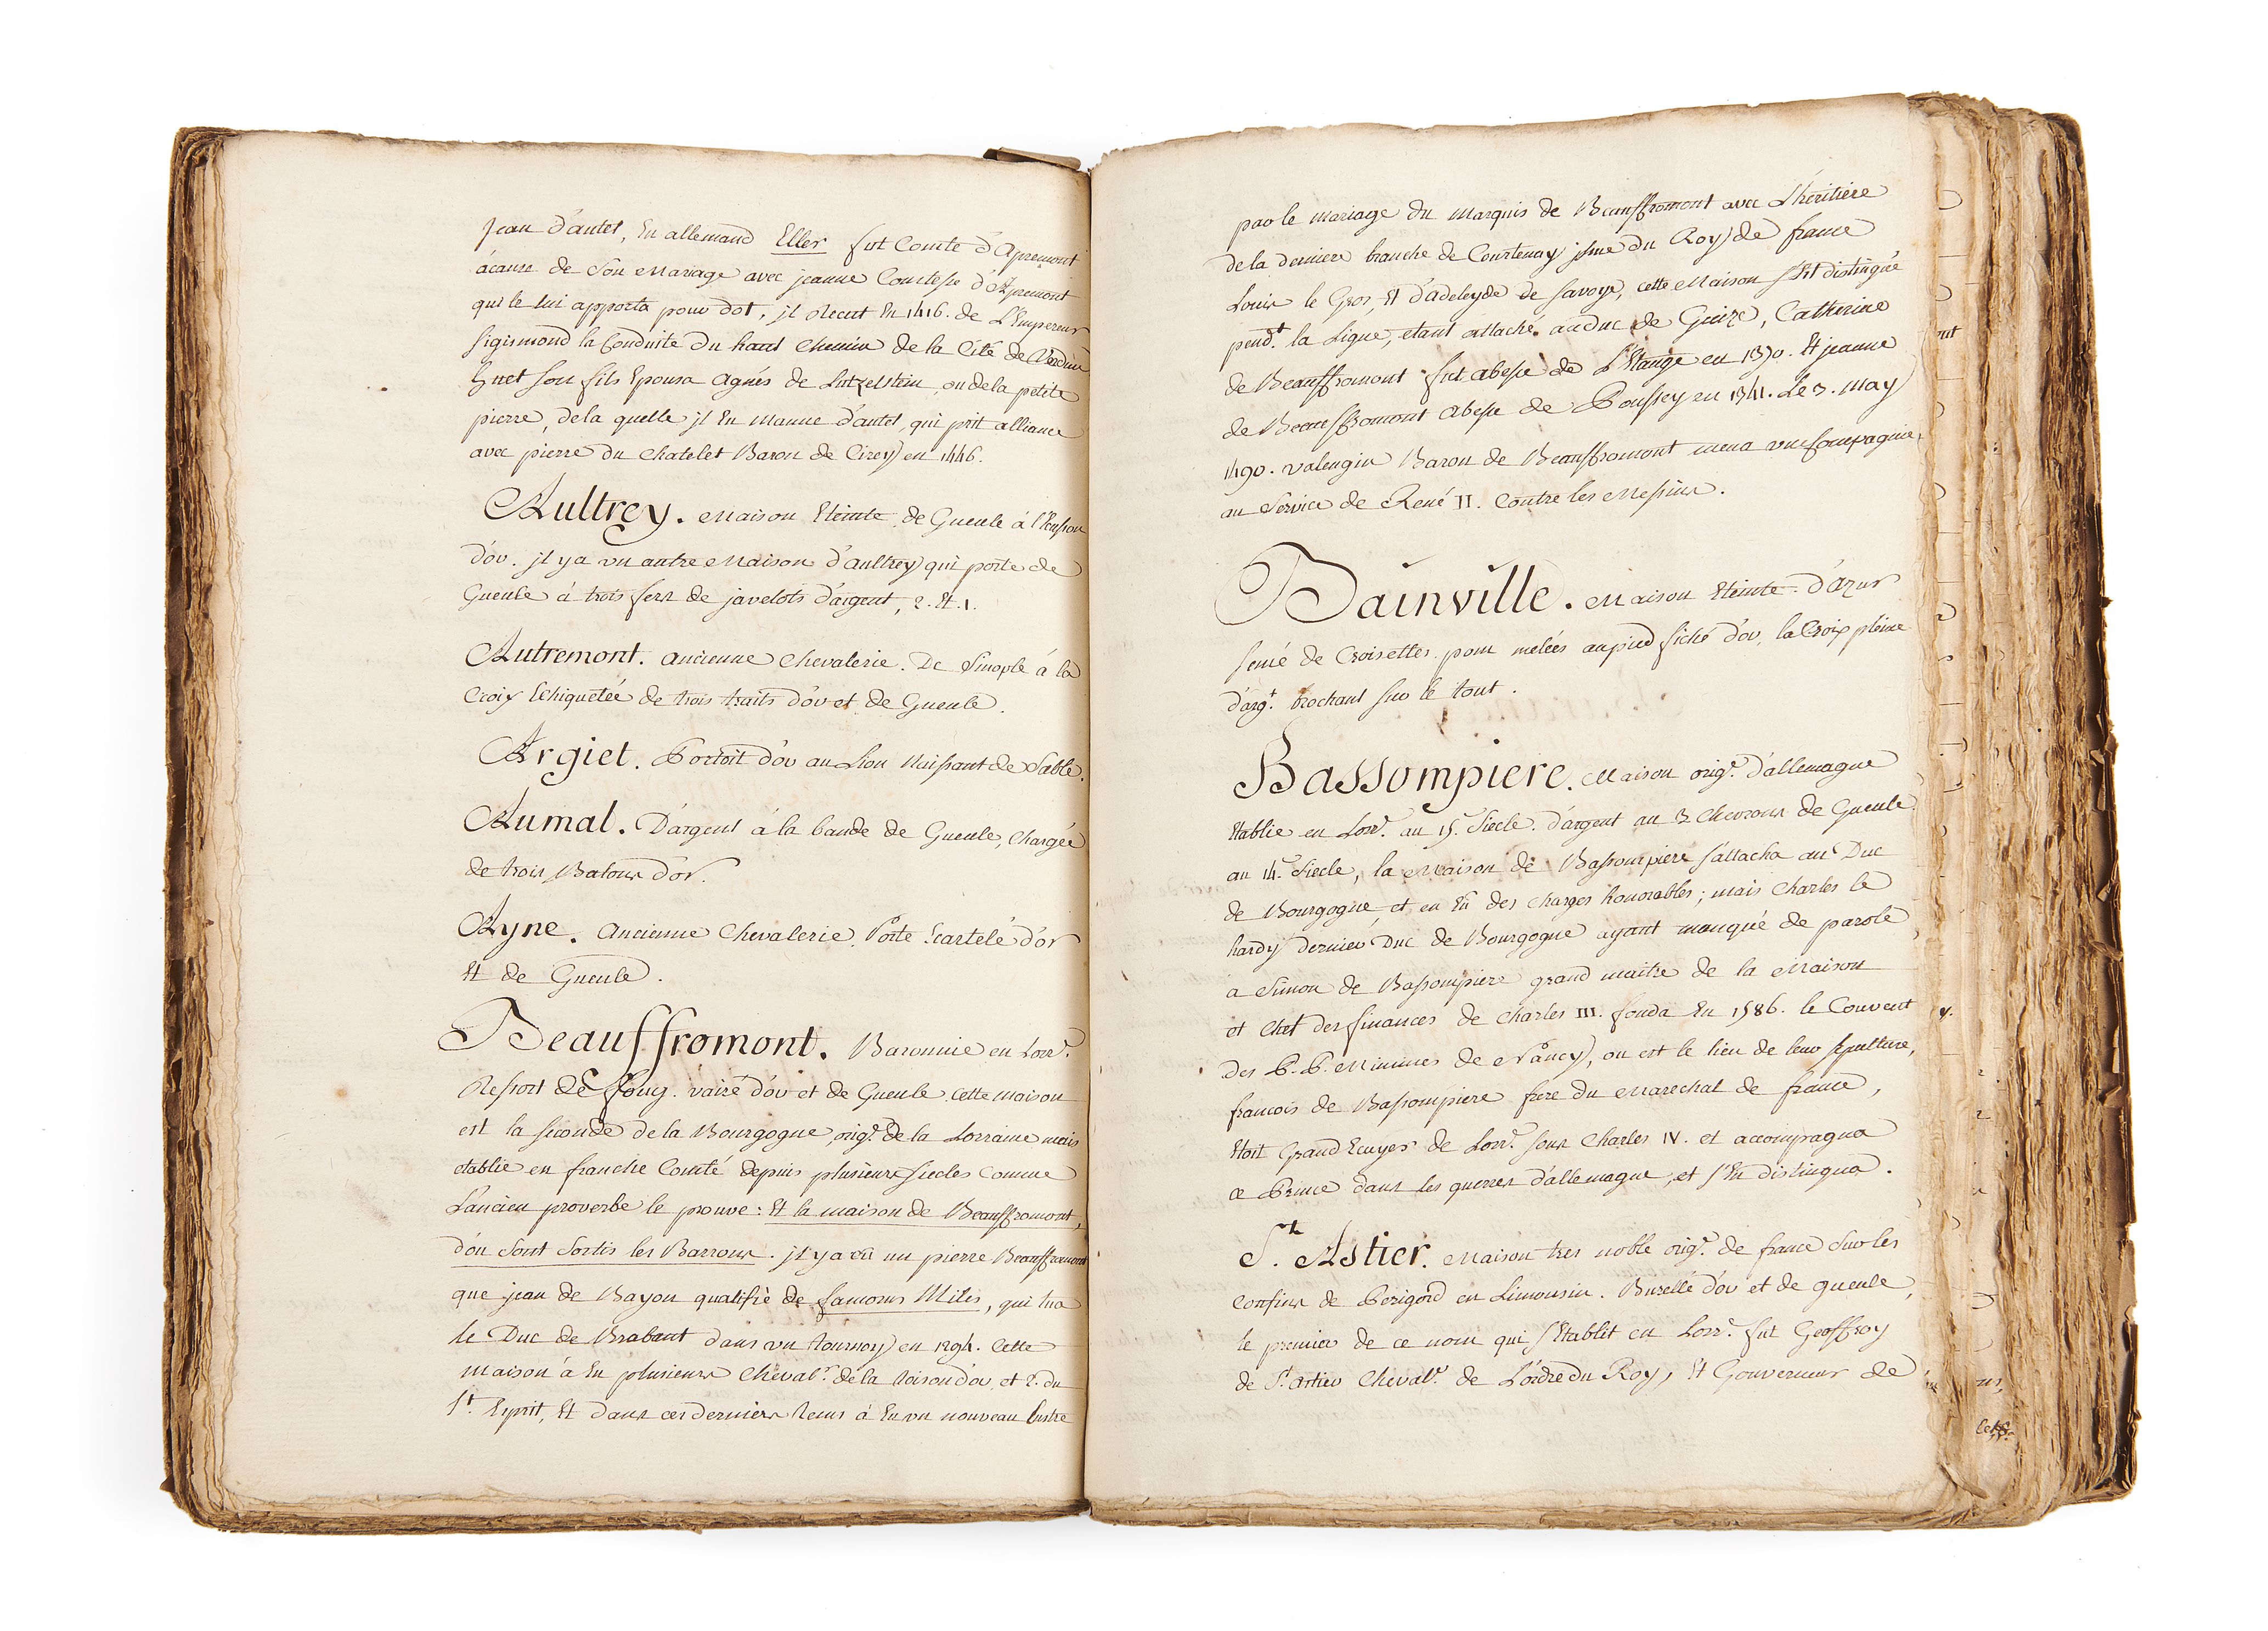 Jean d'autel, En allemand Eller fut Comte d'Apremont
àcause de Son Mariage avec jeanne Comtesse d'Apremont
qui le lui apporta pour dot, jl Recut En 1416. de L'Empereur
Sigismond la Conduite du haut chemin de la Cité de Verdun
huet son fils Epousa Agnés de Lutzelstein, ou de la petite
pierre, de la quelle jl Eu Manne d'autel, qui prit alliance
avec pierre du Chatelet Baron de Cirey en 1446.
Aultrey. Maison Eteinte, de Gueule à l'Ecusson
d'or. jl y a vn autre Maison d'aultrey qui porte de
Gueule à trois fers de javelots d'argent, 2. Et. 1.
Autremont. ancienne Chevalerie. De Sinople à la
Croix Echiquetée de trois traits d'or et de Gueule.
Argiet. Portoit d'or au Lion Naissant de Sable.
Aumal. D'argent à la bande de Gueule, Chargée
de trois Batons d'or.
Ayne. Ancienne Chevalerie, Porte Ecartelé d'or
Et de Gueule.
Beauffromont. Baronnie en Lorr.e
Ressort de foug. vairé d'or et de Gueule, cette maison
est la seconde de la Bourgogne, orig.e de la Lorraine mais
etablie en franche Comté depuis plusieurs siecles comme
L'ancien proverbe le prouve: Et la maison de Beauffromont,
d'ou Sont Sortis les Barrons. jl y a eü un pierre Beauffromont
que jean de Bayon qualifié de famosus Miles, qui tua
le Duc de Brabant dans vn tournoy en 1294. Cette
Maison à Eu plusieurs Cheval.rs de la toison d'or, et 2. du
S.t Esprit, Et dans ces derniers tems à Eu vn nouveau lustre
par le mariage du Marquis de Beauffromont avec L'heritiere
de la derniere branche de Courtenay jssue du Roy de france
Louis le Gros, Et d'adeleyde de Savoye, cette Maison s'Est distinguée
pend.t la Ligue, etant attaché au duc de Guize, Catherine
de Beauffromont fut abesse de L'Etange en 1370. Et jeanne
de Beauffromont Abesse de Poussey en 1341. Le 3. May
1490. valengin Baron de Beauffromont mena vne Compagnie
au Service de René II. Contre les Messins.
Bainville. Maison Eteinte. d'Azur
semé de Croisettes pom melées au pied fiché d'or, la Croix pleine
d'arg.t brochant sur le tout.
Bassompiere. Maison orig.e d'allemague
Etablie en Lorr.e au 15.e Siecle. d'argent au 3 Chevrons de Gueule
au 14.e Siecle, la Maison de Bassompiere s'attacha au Duc
de Bourgogne, et en Eu des charges honorables; mais Charles le
hardy dernier Duc de Bourgogne ayant manqué de parole
a Simon de Bassompiere grand maitre de la Maison
et Chef des finances de Charles III. fonda En 1586. le Couvent
des P.P. Minimes de Nancy, ou est le lieu de leur sepulture,
francois de Bassompiere frere du Marechal de france,
Etoit Grand Ecuyer de Lorr.e sous Charles IV. et accompagna
ce Prince dans les guerres d'allemague, et s'En distingua.
S.t Astier. Maison tres noble orig.e de france Sur les
Confins de Perigord en Limousin. Burellé d'or et de gueule,
le premier de ce nom qui s'Etablit en Lorr.e fut Geoffroy
de S.t Astier Cheval.r de L'ordre du Roy, Et Gouverneur de